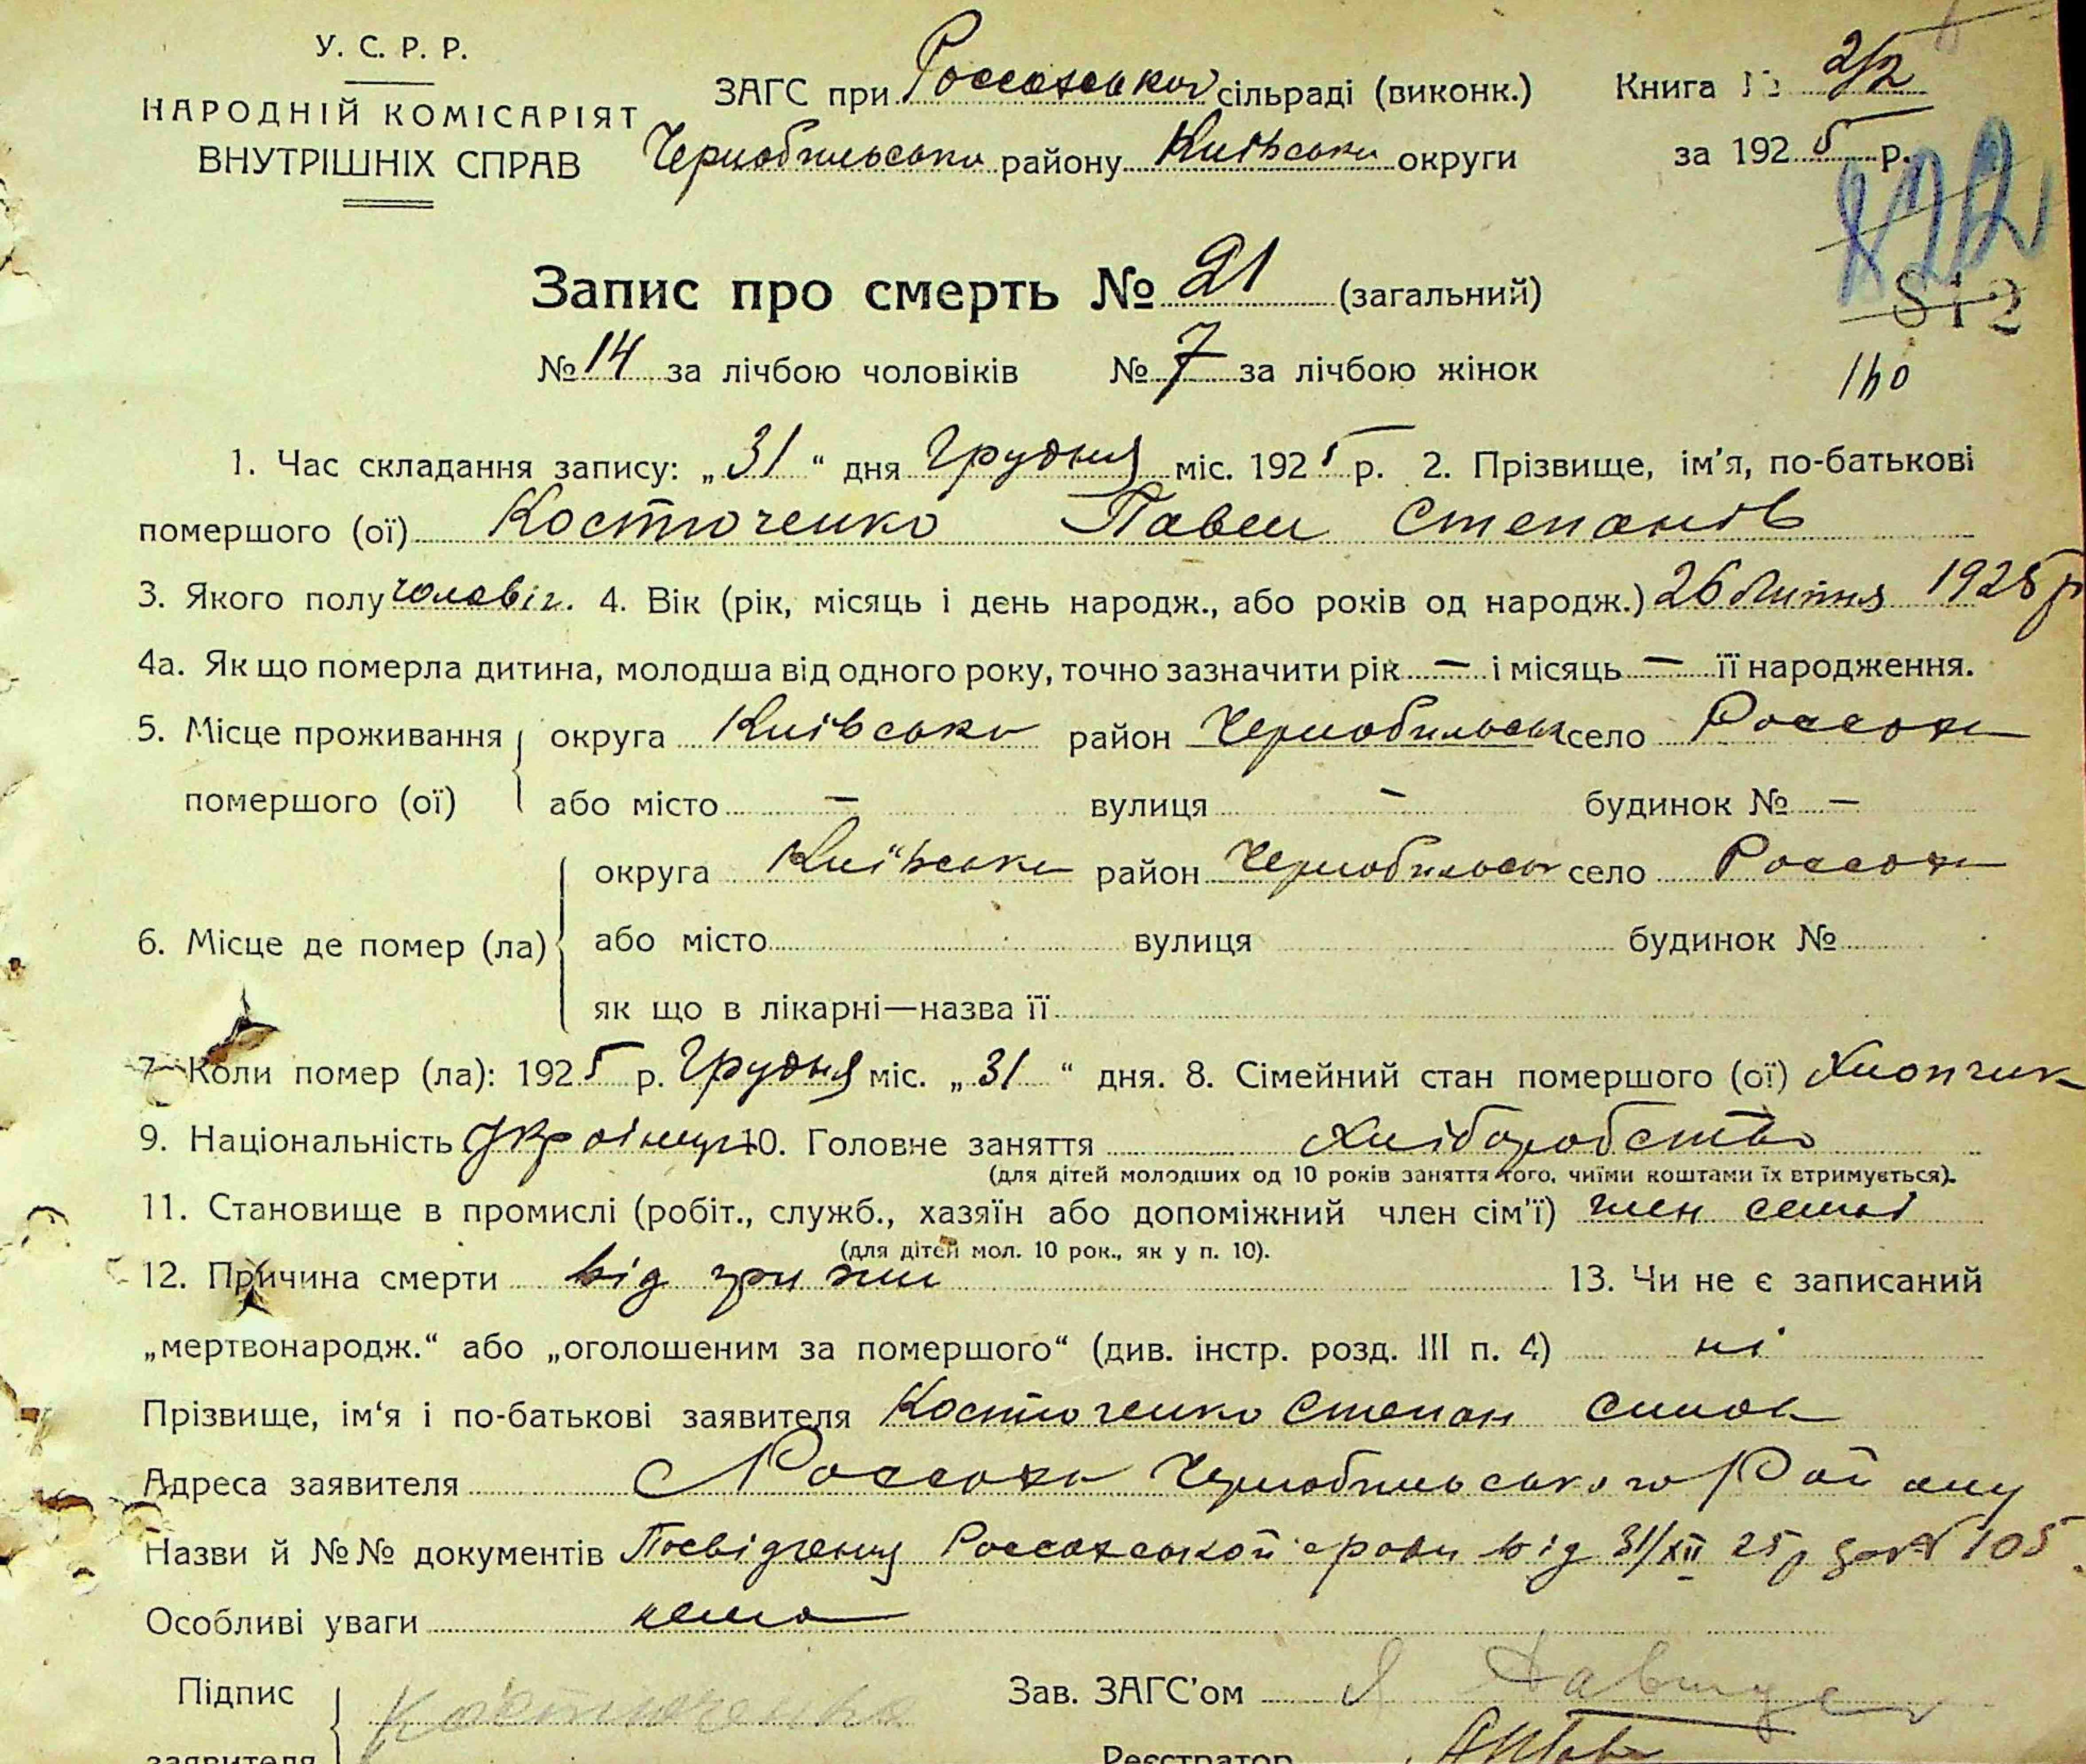 У. С. Р. Р.
НАРОДНІЙ КОМІСАРІЯТ
ВНУТРІШНІХ СПРАВ
ЗАГС при Россохської сільраді (виконк.)
Чернобильськи району Київськи округи
Книга № 2/2
за 1925 р.
812
140
Запис про смерть № 21 (загальний)
№ 14 за лічбою чоловіків № 7 за лічбою жінок
1. Час складання запису: „31“ дня Грудня міс. 1925 р. 2. Прізвище, ім'я, по-батькові
помершого (ої) Костюченко Павел Степанів
3. Якого полу чоловіч. 4. Вік (рік, місяць і день народж., або років од народж.) 26 Липня 1925 р
4а. Як що померла дитина, молодша від одного року, точно зазначити рік — і місяць — її народження.
5. Місце проживання помершого (ої) округа Київська район Чернобильськ село Россоха
або місто — вулиця — будинок № —
6. Місце де помер (ла) округа Київська район Чернобильськ село Россоха
або місто вулиця будинок №
як що в лікарні—назва її
7. Коли помер (ла): 1925 р. Грудня міс. „31“ дня. 8. Сімейний стан помершого (ої) Хлопчик
9. Національність Україцнц 10. Головне заняття Хліборобство
(для дітей молодших од 10 років заняття того, чиїми коштами їх втримується).
11. Становище в промислі (робіт., служб., хазяїн або допоміжний член сім'ї) член семьї
(для дітей мол. 10 рок., як у п. 10).
12. Причина смерти від грижи 13. Чи не є записаний
„мертвонародж.“ або „оголошеним за помершого“ (див. інстр. розд. III п. 4) ні
Прізвище, ім'я і по-батькові заявителя Костюченко Степан
Адреса заявителя С Россоха Чернобильського Району
Назви й №№ документів Посвідченя Россохської с ради від 31/XII 25 р за № 105
Особливі уваги нема
Підпис
заявителя
Костюченко
Зав. ЗАГС'ом
Реєстратор